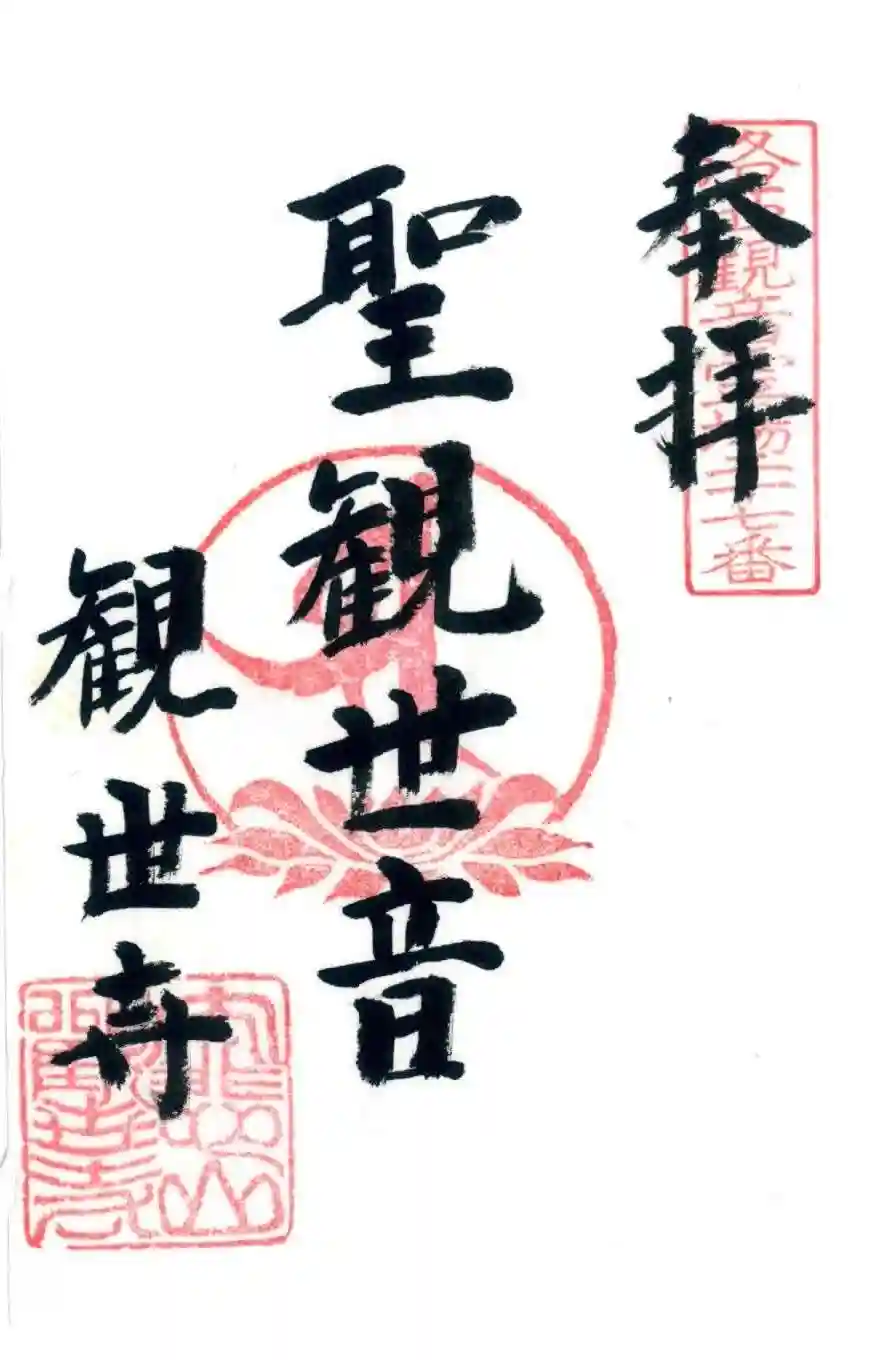 奉拝
洛西観音霊場二十七番
聖観世音
観世寺